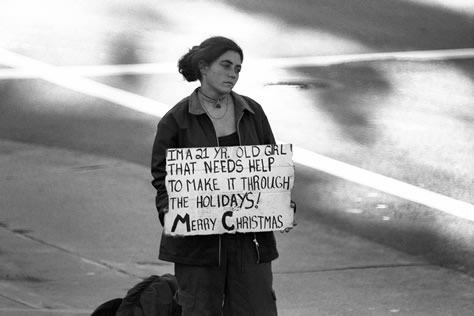 IM A 21 YR. OLD GIRL!
THAT NEEDS HELP
TO MAKE IT THROUGH
THE HOLIDAYS!
MERRY CHRISTMAS